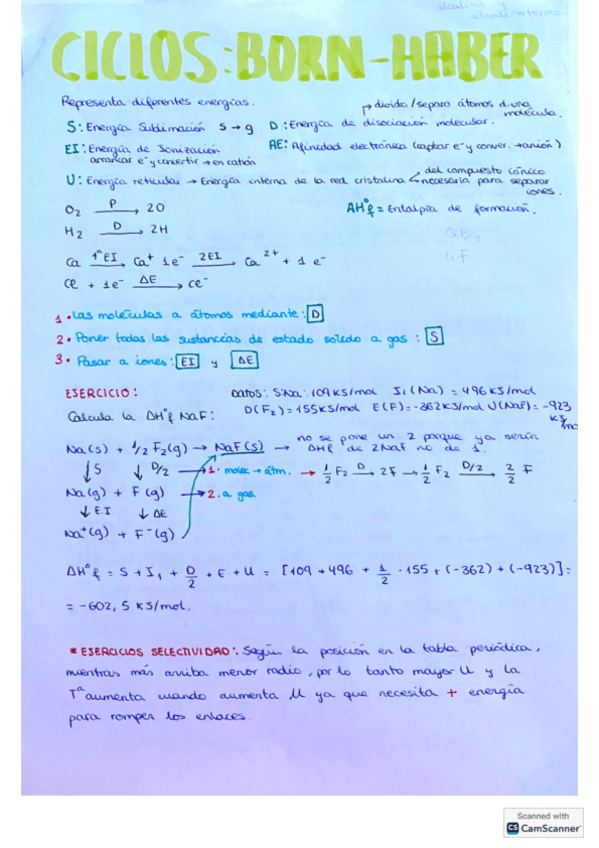 alcalinos y
alcali-terreos
CICLOS: BORN-HABER
Representa diferentes energías.
→ divido/separo átomos d una molécula.
S: Energía Sublimación S → g
D: Energía de disociación molecular.
EI: Energía de Ionización
arrancar e⁻ y convertir → en catión
AE: Afinidad electrónica (captar e⁻ y conver. → anión)
U: Energía reticular → Energía interna de la red cristalina
del compuesto iónico
necesaria para separar iones.
O₂ —P→ 2O
ΔHºf = Entalpía de formación.
H₂ —D→ 2H
Ca —1ªEI→ Ca⁺ 1e⁻ —2EI→ Ca²⁺ + 1 e⁻
Cl + 1e⁻ —ΔE→ Cl⁻
1• Las moléculas a átomos mediante: D
2• Poner todas las sustancias de estado sólido a gas: S
3• Pasar a iones: EI y ΔE
EJERCICIO:
DATOS: S Na: 109 KJ/mol I₁(Na) = 496 KJ/mol
Calcula la ΔHºf NaF:
D(F₂) = 155 KJ/mol E(F) = -362 KJ/mol U(NaF) = -923 KJ/mol
Na(s) + 1/2 F₂(g) → NaF(s) → no se pone un 2 porque ya sería
ΔHf de 2NaF no de 1.
↓S ↓D/2 → 1• molec → átm. → 1/2 F₂ —D→ 2F → 1/2 F₂ —D/2→ 2/2 F
Na(g) + F(g) → 2. a gas
↓E.I ↓ΔE
Na⁺(g) + F⁻(g)
ΔHºf = S + I₁ + D/2 + E + U = [109 + 496 + 1/2 · 155 + (-362) + (-923)] =
= -602,5 KJ/mol.
* EJERCICIOS SELECTIVIDAD: Según la posición en la tabla periódica,
mientras más arriba menor radio, por lo tanto mayor U y la
Tª aumenta cuando aumenta U ya que necesita + energía
para romper los enlaces.
Scanned with
CS CamScanner